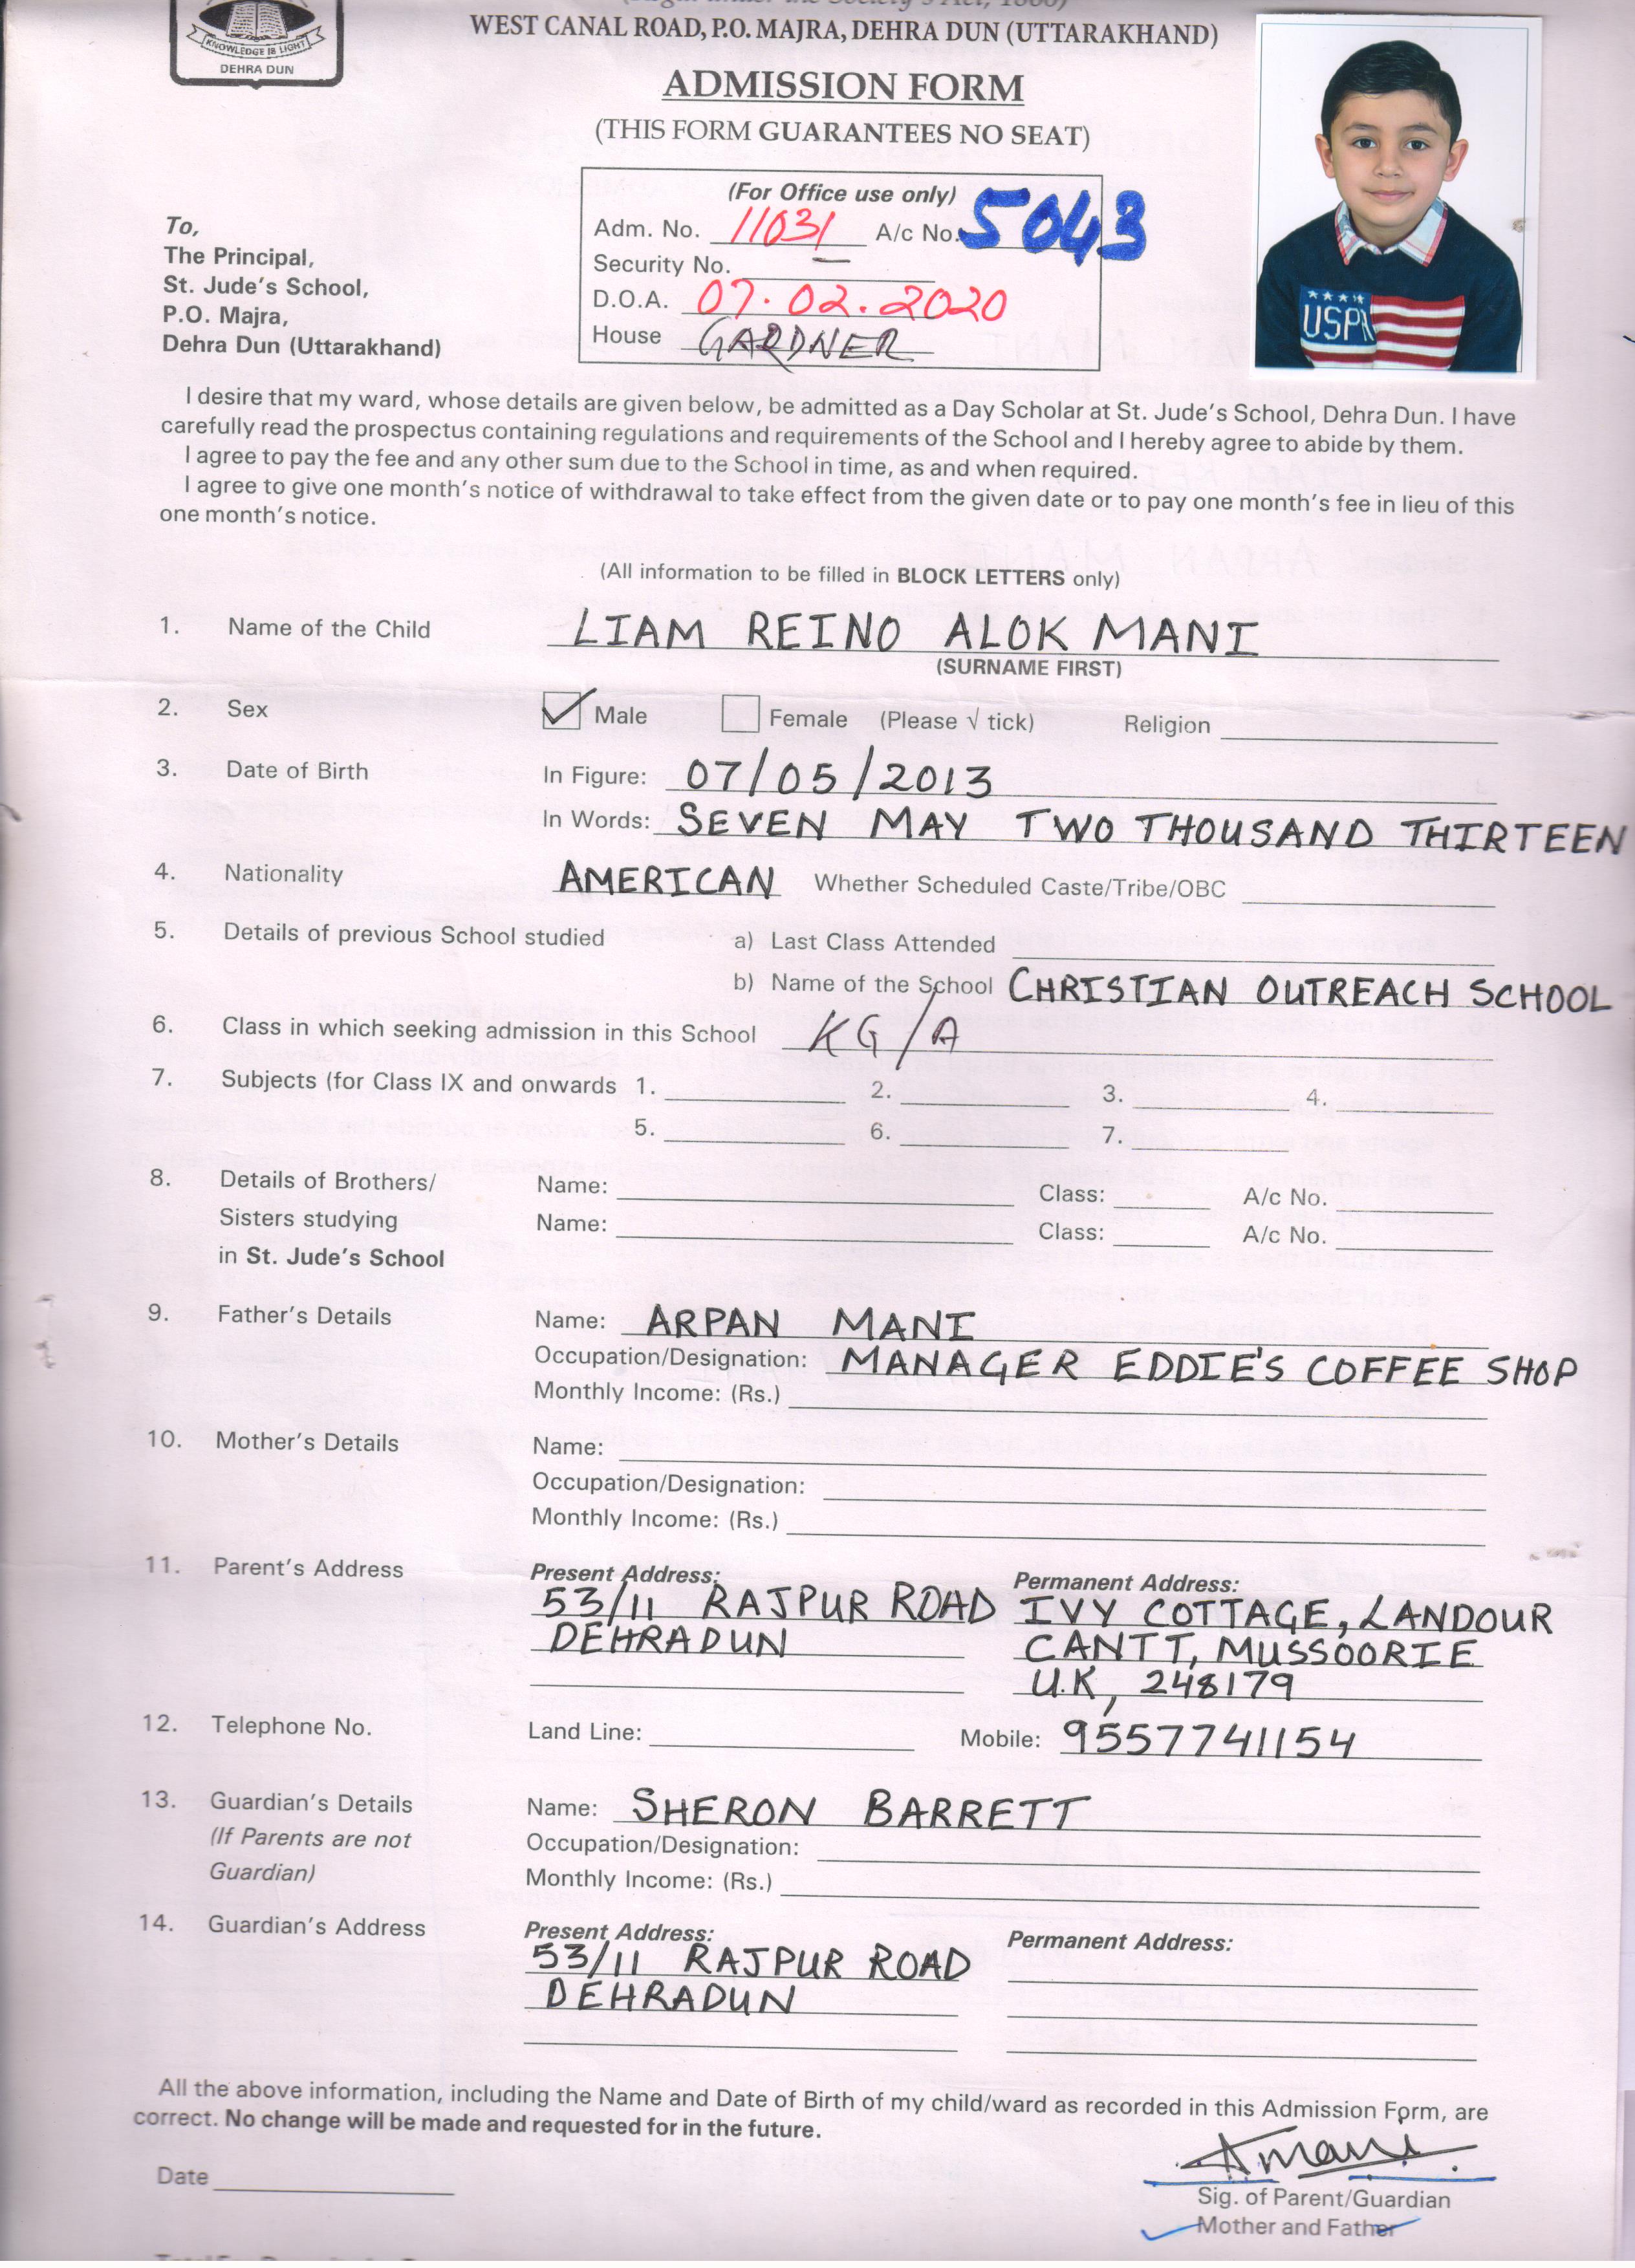 KNOWLEDGE IS LIGHT
DEHRA DUN
WEST CANAL ROAD, P.O. MAJRA, DEHRA DUN (UTTARAKHAND)
ADMISSION FORM
(THIS FORM GUARANTEES NO SEAT)
(For Office use only)
Adm. No. 11031 A/c No. 5043
Security No.
D.O.A. 07.02.2020
House GARDNER
To,
The Principal,
St. Jude's School,
P.O. Majra,
Dehra Dun (Uttarakhand)
USPA
I desire that my ward, whose details are given below, be admitted as a Day Scholar at St. Jude's School, Dehra Dun. I have
carefully read the prospectus containing regulations and requirements of the School and I hereby agree to abide by them.
I agree to pay the fee and any other sum due to the School in time, as and when required.
I agree to give one month's notice of withdrawal to take effect from the given date or to pay one month's fee in lieu of this
one month's notice.
(All information to be filled in BLOCK LETTERS only)
1. Name of the Child LIAM REINO ALOK MANI
(SURNAME FIRST)
2. Sex Male Female (Please √ tick) Religion
3. Date of Birth In Figure: 07/05/2013
In Words: SEVEN MAY TWO THOUSAND THIRTEEN
4. Nationality AMERICAN Whether Scheduled Caste/Tribe/OBC
5. Details of previous School studied a) Last Class Attended
b) Name of the School CHRISTIAN OUTREACH SCHOOL
6. Class in which seeking admission in this School KG/A
7. Subjects (for Class IX and onwards 1. 2. 3. 4.
5. 6. 7.
8. Details of Brothers/ Name: Class: A/c No.
Sisters studying Name: Class: A/c No.
in St. Jude's School
9. Father's Details Name: ARPAN MANI
Occupation/Designation: MANAGER EDDIE'S COFFEE SHOP
Monthly Income: (Rs.)
10. Mother's Details Name:
Occupation/Designation:
Monthly Income: (Rs.)
11. Parent's Address Present Address: Permanent Address:
53/11 RAJPUR ROAD IVY COTTAGE, LANDOUR
DEHRADUN CANTT, MUSSOORIE
U.K, 248179
12. Telephone No. Land Line: Mobile: 9557741154
13. Guardian's Details Name: SHERON BARRETT
(If Parents are not Occupation/Designation:
Guardian) Monthly Income: (Rs.)
14. Guardian's Address Present Address: Permanent Address:
53/11 RAJPUR ROAD
DEHRADUN
All the above information, including the Name and Date of Birth of my child/ward as recorded in this Admission Form, are
correct. No change will be made and requested for in the future.
Amani
Date
Sig. of Parent/Guardian
Mother and Father